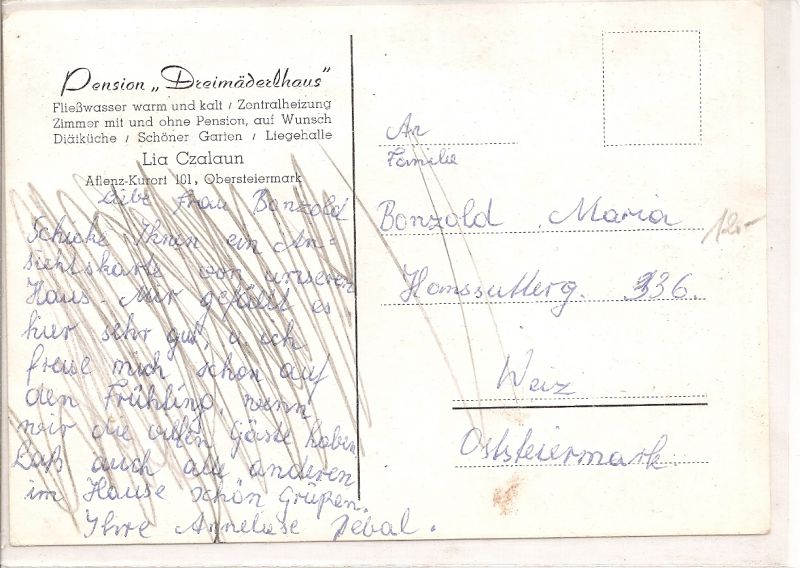 Pension „Dreimäderlhaus"
Fließwasser warm und kalt / Zentralheizung
Zimmer mit und ohne Pension, auf Wunsch
Diätküche / Schöner Garten / Liegehalle
Lia Czalaun
Aflenz-Kurort 101, Obersteiermark
Liebe Frau Bonzold
Schicke Ihnen ein An=
siehtskarte von unseren
Haus. Mir gefällt es
hier sehr gut, u. ich
freue mich schon auf
den Frühling, wenn
wir die vielen Gäste haben
Laß auch alle anderen
im Hause schön Grüßen.
Ihre Anneliese Pebal.
An
Familie
Bonzold Maria
12.-
336.
Weiz
Oststeiermark.